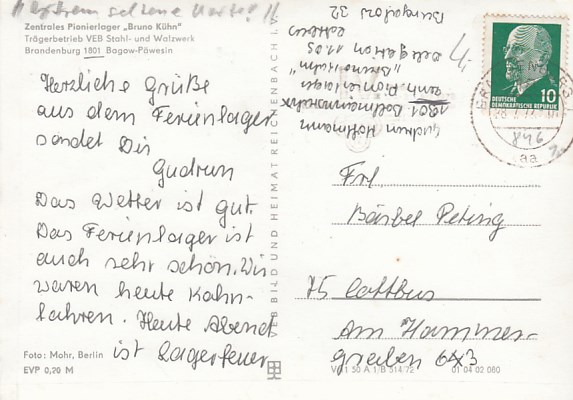 extrem seltene Karte!!
Zentrales Pionierlager „Bruno Kühn“
Trägerbetrieb VEB Stahl- und Walzwerk
Brandenburg 1801 Bagow-Päwesin
Herzliche Grüße
aus dem Ferienlager
sendet Dir
Gudrun
Das Wetter ist gut.
Das Ferienlager ist
auch sehr schön. Wir
waren heute Kahn-
fahren. Heute Abend
ist Lagerfeuer
Foto: Mohr, Berlin
EVP 0,20 M
VEB BILD UND HEIMAT REICHENBACH I. V.
Gudrun Hoffmann
1801
Zentr. Pionierlager
„Bruno Kühn“
Delegation 11.05
Cottbus
Bungalow 32
4,-
10
DEUTSCHE
DEMOKRATISCHE REPUBLIK
846
aa
Frl.
Bärbel Peting
75 Cottbus
Am Hammer-
graben 643
V 11 50 A 1/B 514/72 01 04 02 080